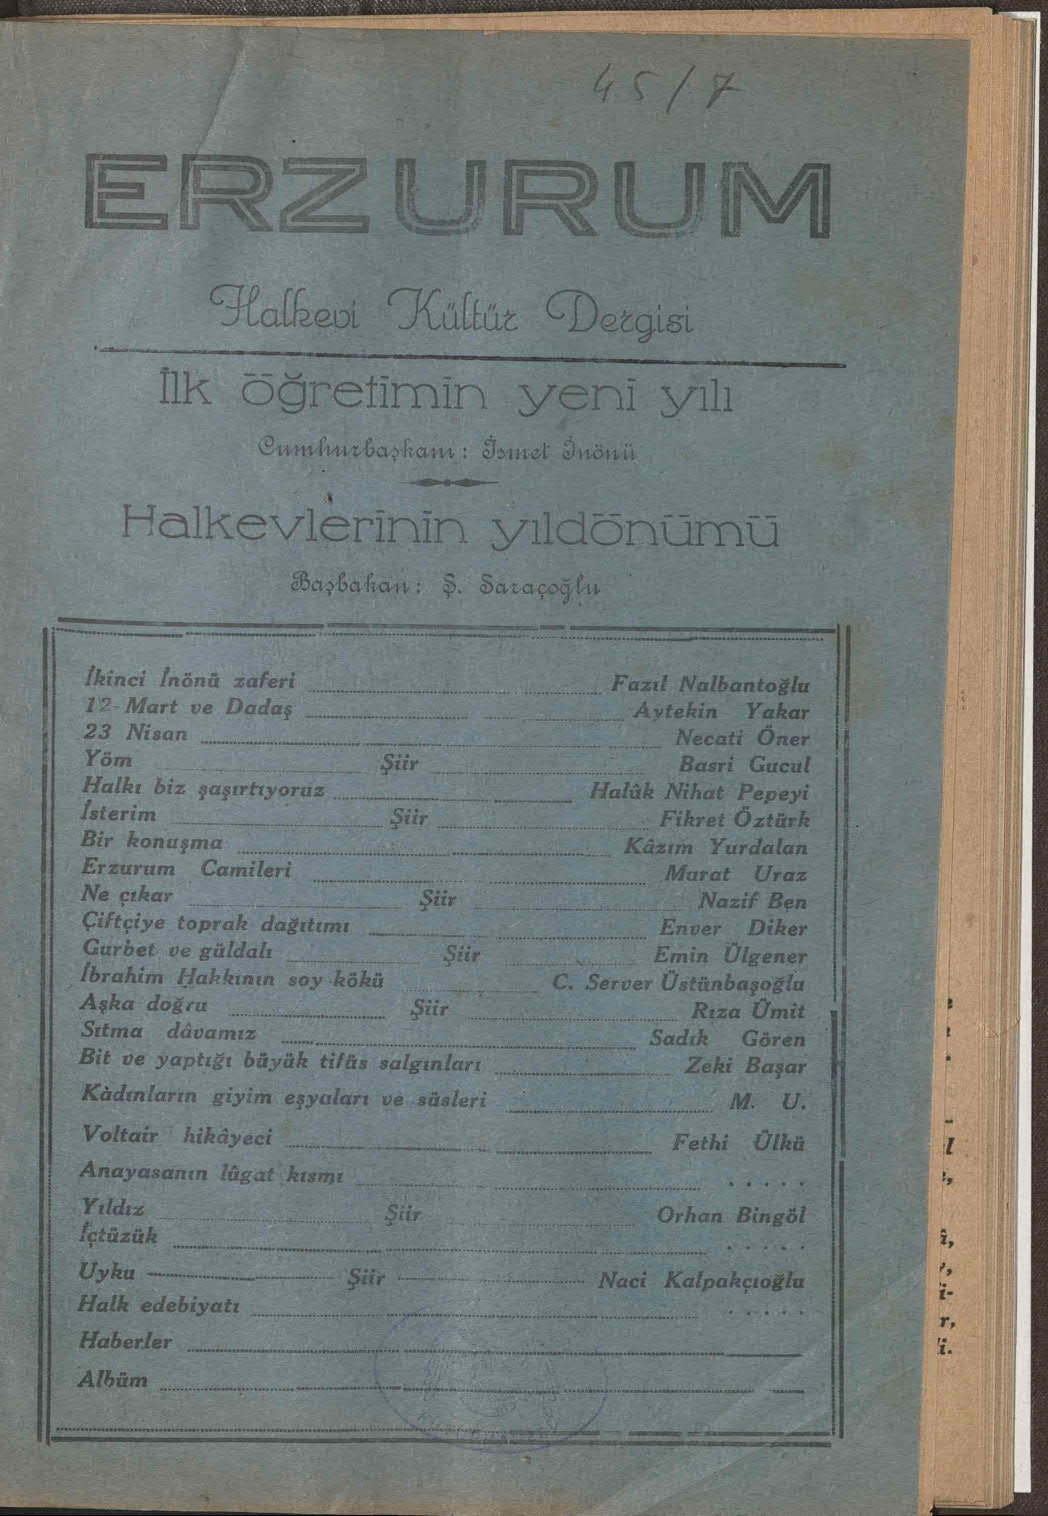 45/7
ERZURUM
Halkevi Kültür Dergisi
İlk öğretimin yeni yılı
Cumhurbaşkanı : İsmet İnönü
Halkevlerinin yıldönümü
Başbakan : Ş. Saraçoğlu
İkinci İnönü zaferi Fazıl Nalbantoğlu
12 Mart ve Dadaş Aytekin Yakar
23 Nisan Necati Öner
Yöm Şiir Basri Gucul
Halkı biz şaşırtıyoruz Halûk Nihat Pepeyi
İsterim Şiir Fikret Öztürk
Bir konuşma Kâzım Yurdalan
Erzurum Camileri Murat Uraz
Ne çıkar Şiir Nazif Ben
Çiftçiye toprak dağıtımı Enver Diker
Gurbet ve güldalı Şiir Emin Ülgener
İbrahim Hakkının soy kökü C. Server Üstünbaşoğlu
Aşka doğru Şiir Rıza Ümit
Sıtma dâvamız Sadık Gören
Bit ve yaptığı büyük tifüs salgınları Zeki Başar
Kàdınların giyim eşyaları ve süsleri M. U.
Voltair hikâyeci Fethi Ülkü
Anayasanın lûgat kısmı . . . . .
Yıldız Şiir Orhan Bingöl
İçtüzük . . . . .
Uyku Şiir Naci Kalpakçıoğlu
Halk edebiyatı . . . . .
Haberler
Albüm